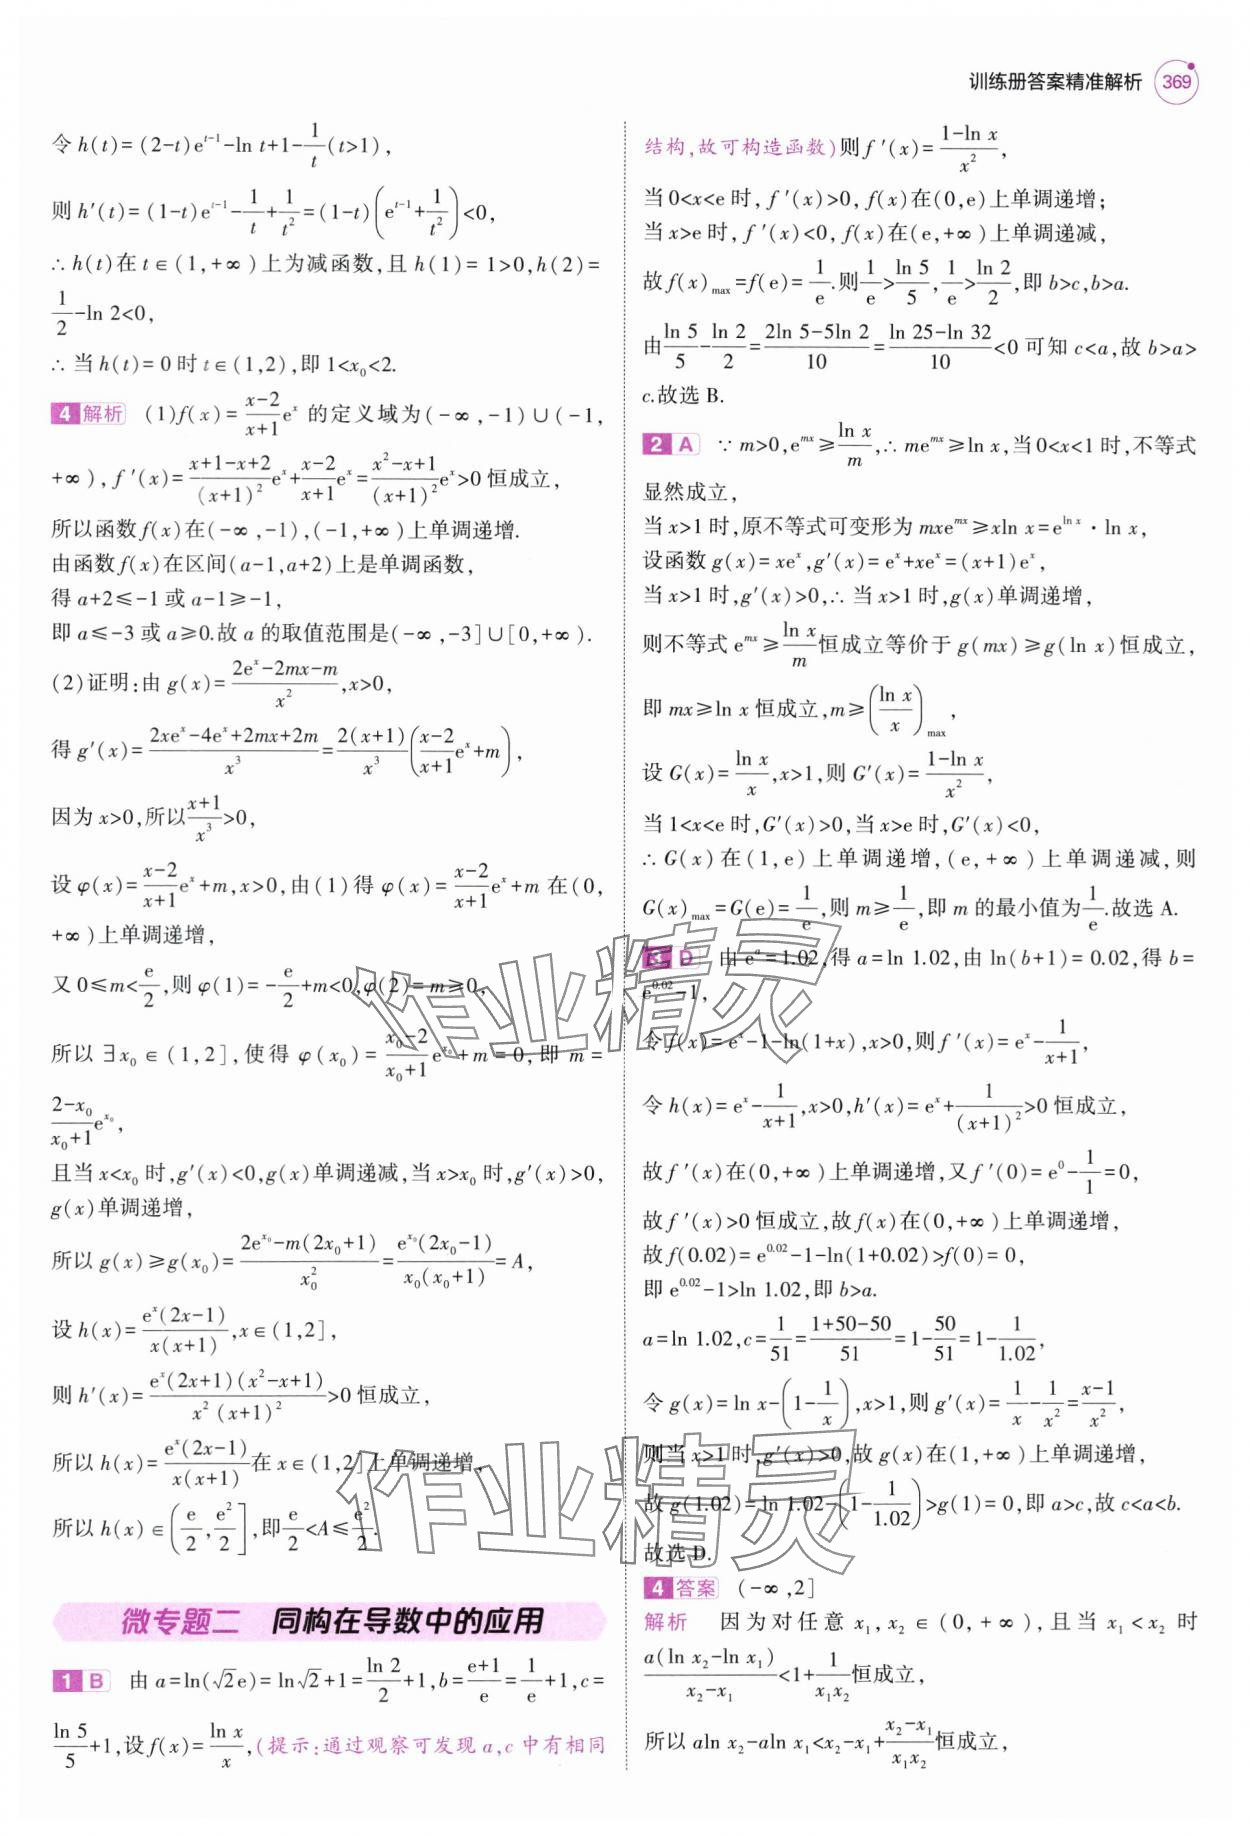 训练册答案精准解析 369
令 h(t)=(2-t)e^{t-1}-ln t+1-\frac{1}{t}(t>1),
则 h′(t)=(1-t)e^{t-1}-\frac{1}{t}+\frac{1}{t^2}=(1-t)(e^{t-1}+\frac{1}{t^2})<0,
∴ h(t)在 t∈(1,+∞)上为减函数,且 h(1)=1>0,h(2)=
\frac{1}{2}-ln 2<0,
∴ 当 h(t)=0 时 t∈(1,2),即 1<x_0<2.
4 解析 (1)f(x)=\frac{x-2}{x+1}e^x 的定义域为(-∞,-1)∪(-1,
+∞),f′(x)=\frac{x+1-x+2}{(x+1)^2}e^x+\frac{x-2}{x+1}e^x=\frac{x^2-x+1}{(x+1)^2}e^x>0 恒成立,
所以函数 f(x)在(-∞,-1),(-1,+∞)上单调递增.
由函数 f(x)在区间(a-1,a+2)上是单调函数,
得 a+2≤-1 或 a-1≥-1,
即 a≤-3 或 a≥0.故 a 的取值范围是(-∞,-3]∪[0,+∞).
(2)证明:由 g(x)=\frac{2e^x-2mx-m}{x^2},x>0,
得 g′(x)=\frac{2xe^x-4e^x+2mx+2m}{x^3}=\frac{2(x+1)}{x^3}(\frac{x-2}{x+1}e^x+m),
因为 x>0,所以\frac{x+1}{x^3}>0,
设 φ(x)=\frac{x-2}{x+1}e^x+m,x>0,由(1)得 φ(x)=\frac{x-2}{x+1}e^x+m 在(0,
+∞)上单调递增,
又 0≤m<\frac{e}{2},则 φ(1)=-\frac{e}{2}+m<0,φ(2)=m≥0,
所以 ∃x_0∈(1,2],使得 φ(x_0)=\frac{x_0-2}{x_0+1}e^{x_0}+m=0,即 m=
\frac{2-x_0}{x_0+1}e^{x_0},
且当 x<x_0 时,g′(x)<0,g(x)单调递减,当 x>x_0 时,g′(x)>0,
g(x)单调递增,
所以 g(x)≥g(x_0)=\frac{2e^{x_0}-m(2x_0+1)}{x_0^2}=\frac{e^{x_0}(2x_0-1)}{x_0(x_0+1)}=A,
设 h(x)=\frac{e^x(2x-1)}{x(x+1)},x∈(1,2],
则 h′(x)=\frac{e^x(2x+1)(x^2-x+1)}{x^2(x+1)^2}>0 恒成立,
所以 h(x)=\frac{e^x(2x-1)}{x(x+1)}在 x∈(1,2]上单调递增,
所以 h(x)∈(\frac{e}{2},\frac{e^2}{2}],即\frac{e}{2}<A≤\frac{e^2}{2}.
微专题二 同构在导数中的应用
1 B 由 a=ln(√2e)=ln√2+1=\frac{ln 2}{2}+1,b=\frac{e+1}{e}=\frac{1}{e}+1,c=
\frac{ln 5}{5}+1,设 f(x)=\frac{ln x}{x},(提示:通过观察可发现 a,c 中有相同
结构,故可构造函数)则 f′(x)=\frac{1-ln x}{x^2},
当 0<x<e 时,f′(x)>0,f(x)在(0,e)上单调递增;
当 x>e 时,f′(x)<0,f(x)在(e,+∞)上单调递减,
故 f(x)_{max}=f(e)=\frac{1}{e}.则\frac{1}{e}>\frac{ln 5}{5},\frac{1}{e}>\frac{ln 2}{2},即 b>c,b>a.
由\frac{ln 5}{5}-\frac{ln 2}{2}=\frac{2ln 5-5ln 2}{10}=\frac{ln 25-ln 32}{10}<0 可知 c<a,故 b>a>
c.故选 B.
2 A ∵ m>0,e^{mx}≥\frac{ln x}{m},∴ me^{mx}≥ln x,当 0<x<1 时,不等式
显然成立,
当 x>1 时,原不等式可变形为 mxe^{mx}≥xln x=e^{ln x}·ln x,
设函数 g(x)=xe^x,g′(x)=e^x+xe^x=(x+1)e^x,
当 x>1 时,g′(x)>0,∴ 当 x>1 时,g(x)单调递增,
则不等式 e^{mx}≥\frac{ln x}{m}恒成立等价于 g(mx)≥g(ln x)恒成立,
即 mx≥ln x 恒成立,m≥(\frac{ln x}{x})_{max},
设 G(x)=\frac{ln x}{x},x>1,则 G′(x)=\frac{1-ln x}{x^2},
当 1<x<e 时,G′(x)>0,当 x>e 时,G′(x)<0,
∴ G(x)在(1,e)上单调递增,(e,+∞)上单调递减,则
G(x)_{max}=G(e)=\frac{1}{e},则 m≥\frac{1}{e},即 m 的最小值为\frac{1}{e}.故选 A.
3 D 由 e^a=1.02,得 a=ln 1.02,由 ln(b+1)=0.02,得 b=
e^{0.02}-1,
令 f(x)=e^x-1-ln(1+x),x>0,则 f′(x)=e^x-\frac{1}{x+1},
令 h(x)=e^x-\frac{1}{x+1},x>0,h′(x)=e^x+\frac{1}{(x+1)^2}>0 恒成立,
故 f′(x)在(0,+∞)上单调递增,又 f′(0)=e^0-\frac{1}{1}=0,
故 f′(x)>0 恒成立,故 f(x)在(0,+∞)上单调递增,
故 f(0.02)=e^{0.02}-1-ln(1+0.02)>f(0)=0,
即 e^{0.02}-1>ln 1.02,即 b>a.
a=ln 1.02,c=\frac{1}{51}=\frac{1+50-50}{51}=1-\frac{50}{51}=1-\frac{1}{1.02},
令 g(x)=ln x-(1-\frac{1}{x}),x>1,则 g′(x)=\frac{1}{x}-\frac{1}{x^2}=\frac{x-1}{x^2},
则当 x>1 时,g′(x)>0,故 g(x)在(1,+∞)上单调递增,
故 g(1.02)=ln 1.02-(1-\frac{1}{1.02})>g(1)=0,即 a>c,故 c<a<b.
故选 D.
4 答案 (-∞,2]
解析 因为对任意 x_1,x_2∈(0,+∞),且当 x_1<x_2 时
\frac{a(ln x_2-ln x_1)}{x_2-x_1}<1+\frac{1}{x_1x_2}恒成立,
所以 aln x_2-aln x_1<x_2-x_1+\frac{x_2-x_1}{x_1x_2}恒成立,
作业精灵
作业精灵